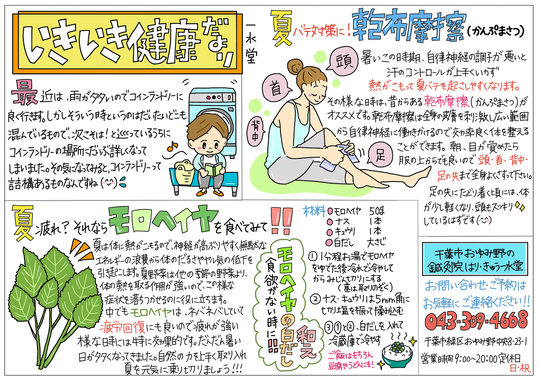 いきいき健康だより
一水堂
最近は、雨が多いのでコインランドリーに
良く行きます。しかしそういう時というのはだいたいどこも
混んでいるもので、次こそは!と巡っているうちに
コインランドリーの場所にだいぶ詳しくなって
しまいました。その気になってみると、コインランドリーって
結構あるものなんですね
夏バテ対策に!乾布摩擦(かんぷまさつ)
頭
首
背中
足
暑いこの時期、自律神経の調子が悪いと
汗のコントロールが上手くいかず
熱がこもって夏バテを起こしやすくなります。
その様な時は、昔からある乾布摩擦(かんぷまさつ)が
オススメです。乾布摩擦は全身の皮膚を刺激し広い範囲
から自律神経に働きかけるので効率良く体を整える
ことができます。朝、目が覚めたら
服の上からでも良いので頭・首・背中・
足の先まで全身よくすって下さい。
足の先にたどり着く頃には、体
が少し軽くなり、頭もスッキリ
しているはずです
夏疲れ?それならモロヘイヤを食べてみて!!
夏は体に熱がこもるので、神経が高ぶりやすく無駄な
エネルギーの浪費から体のだるさややる気の低下を
引き起こします。夏野菜は今の季節の野菜より、
体の熱を取る作用が強いので、この様な
症状を落ちつかせるのに役に立ちます。
中でもモロヘイヤは、ネバネバしていて
疲労回復にも良いので疲れが強い
様な日には特に効果的です。だんだん暑い
日が多くなってきました。自然の力を上手く取り入れ
夏を元気に乗り切りましょう!!!
モロヘイヤの白だし和え
食欲がない時に!!!
材料
モロヘイヤ 50g
ナス 1本
キュウリ 1本
白だし 大さじ
①1分程お湯でモロヘイヤ
をゆでた後冷水で冷やして
からみじん切りにする
(茎は取りのぞく)
②ナス・キュウリは5mm角に
切り塩を振って揉み込む
③①と②、白だしを入れ
冷蔵庫で冷やす
ご飯はもちろん
豆腐やうどんにも!
千葉市おゆみ野の
鍼灸院はり・きゅう一水堂
お問い合わせ・ご予約は
お気軽にご連絡ください!!
043-309-4668
千葉市緑区おゆみ野中央8-23-1
営業時間9:00〜20:00 定休日
日・祝